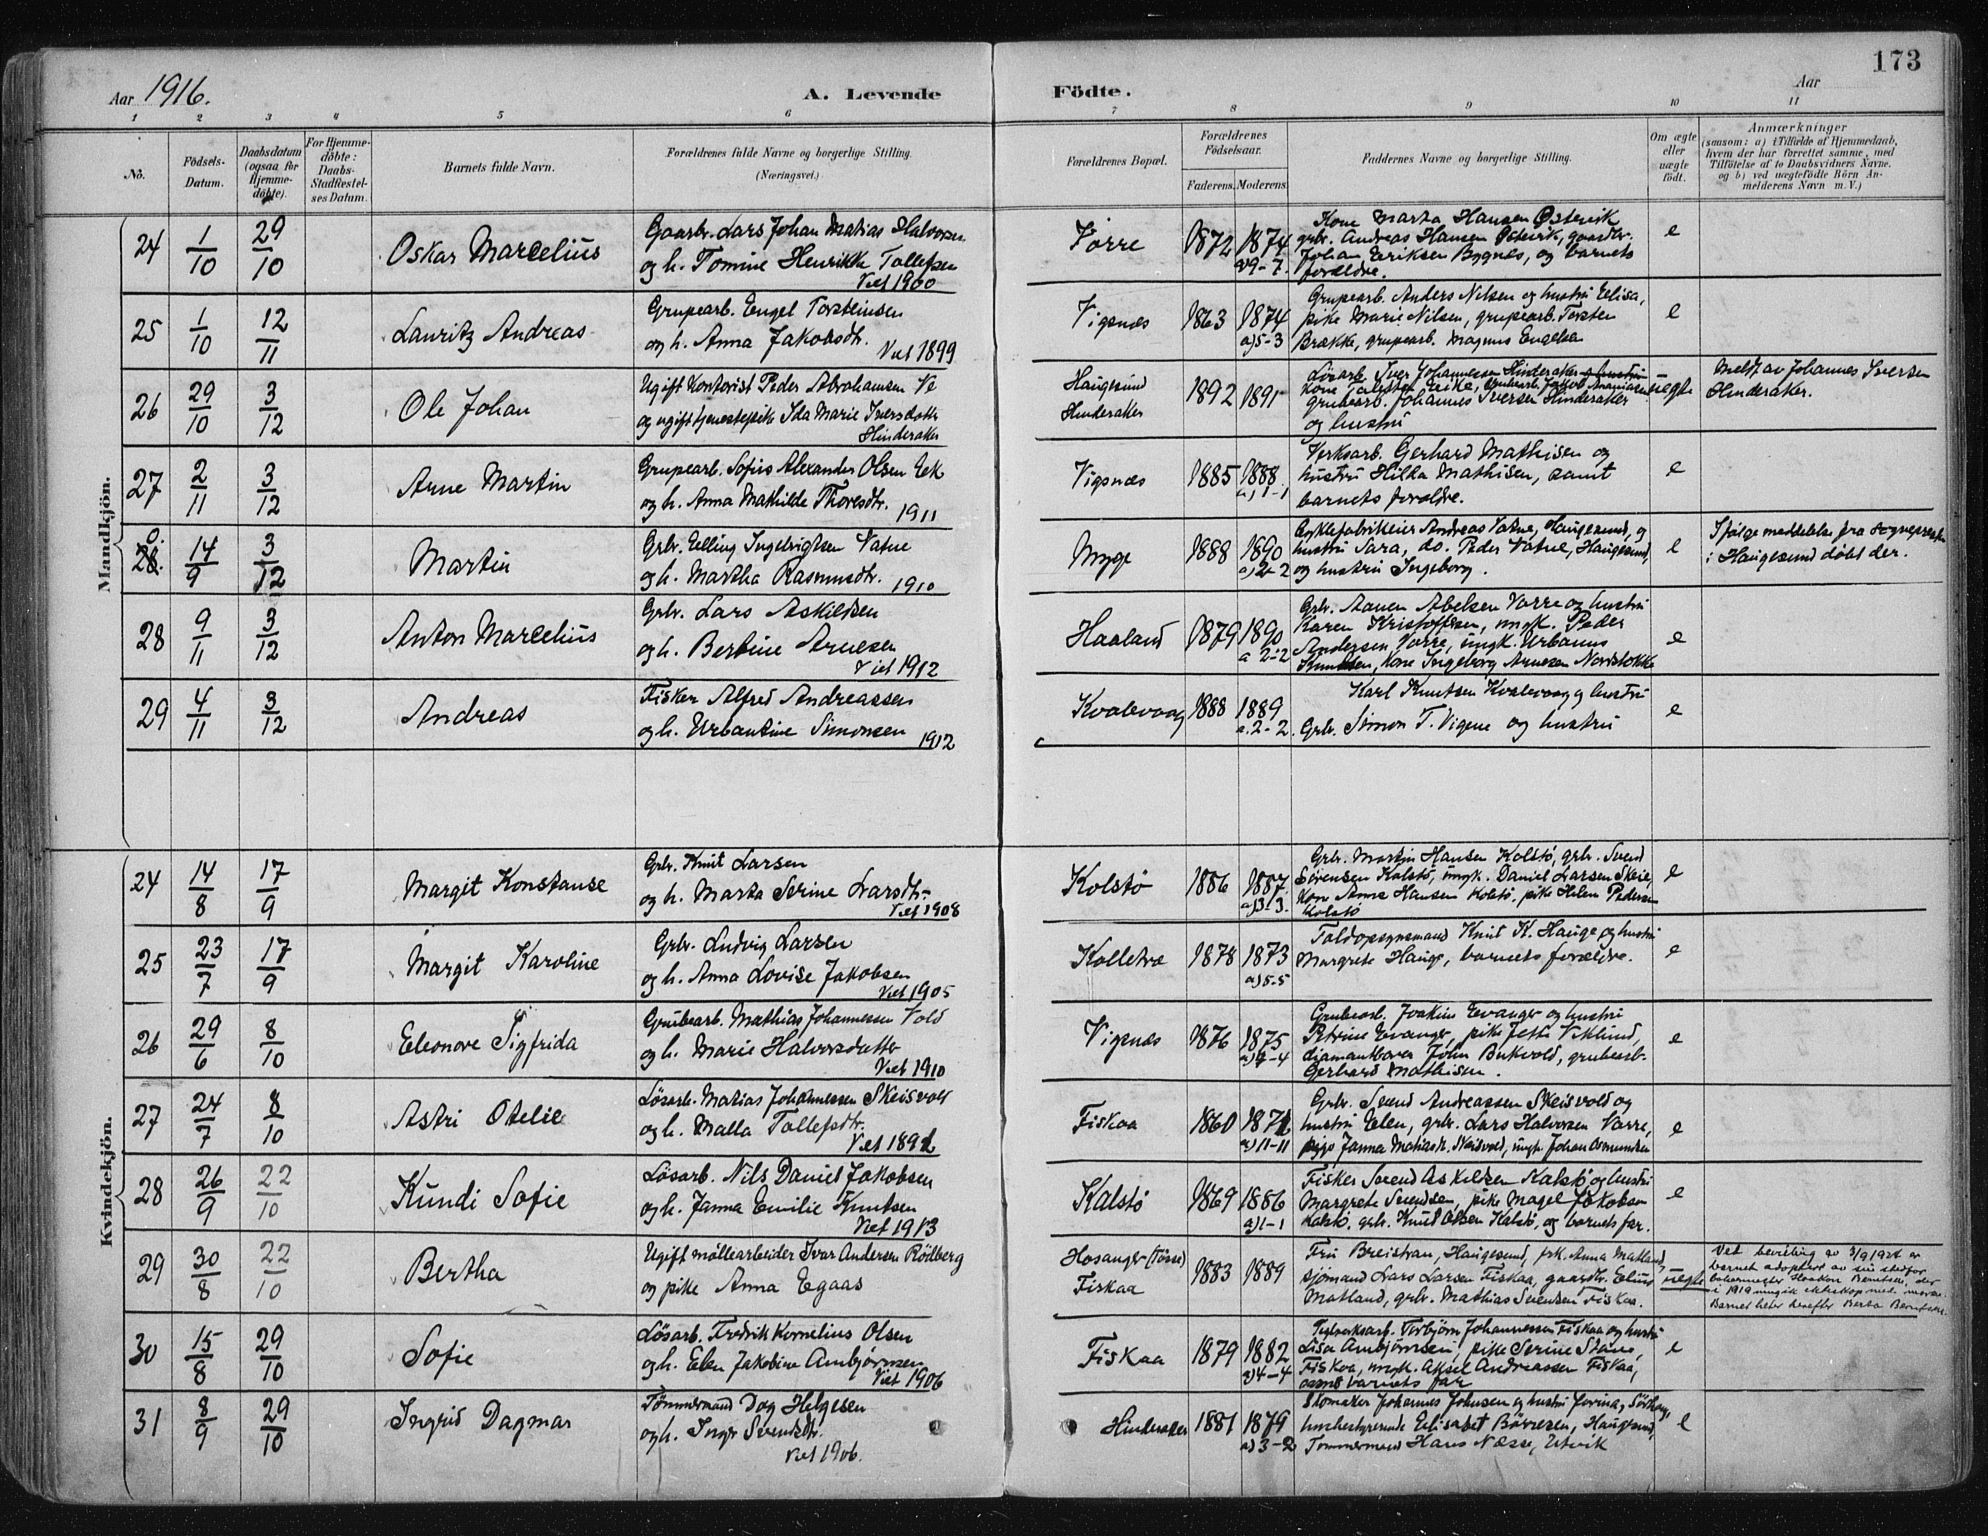 173
Aar 1916.
A. Levende
Födte.
Aar
1 2 3 4 5 6 7 8 9 10 11
No.
Födsels-Datum.
Daabsdatum (ogsaa for Hjemme-döbte).
For Hjemme-döbte: Daabs-Stadfæstel-ses Datum.
Barnets fulde Navn.
Forældrenes fulde Navne og borgerlige Stilling.
(Næringsvei.)
Forældrenes Bopæl.
Forældrenes Födselsaar.
Faderens. Moderens.
Faddernes Navne og borgerlige Stilling.
Om ægte eller uægte födt.
Anmærkninger
(saasom: a) i Tilfælde af Hjemmedaab, hvem der har forrettet samme, med Tilföielse af to Daabsvidners Navne. og b) ved uægtefödte Börn An-melderens Navn m. V.)
Mandkjön.
24 1/10 29/10 Oskar Marcelius
Gaarbr. Lars Johan Matias Halvorsen
og h. Tomine Henrikke Tollefsen
Viet 1900
1872 1874
Kone Marta Hansen Østevik
grbr. Andreas Hansen Østevik, gaardbr.
Johan Eriksen Bygnes, og barnets
forældre.
e
25 1/10 12/11 Lauritz Andreas
Grupearb. Engel Torsteinsen
og h. Anna Jakobsdtr.
Viet 1899
Vigsnæs 1863 1874
a) 5-3
Grupearb. Anders Nilsen og hustru Elisa,
pike Marie Nilsen, grupearb. Torsten
Brække, grupearb. Magnus Engelsen
e
26 29/10 3/12 Ole Johan
Ugift Kontorist Peder Abrahamsen Ve
og ugift tjenestepike Ida Marie Iversdatter
Hinderaker
Haugesund
Hinderaker
1892 1891
Løsarb. Iver Johannesen Hinderaker
grubearb. Johannes Iversen Hinderaker
og hustru
uegte
Meldt av Johannes Iversen
Hinderaker.
27 2/11 3/12 Arne Martin
Grupearb. Sofus Alexander Olsen Eek
og h. Anna Mathilde Thoresdtr.
1911
Vigsnæs 1885 1888
a) 1-1
Verksarb. Gerhard Mathisen og
hustru Hilda Mathisen, samt
barnets forældre.
e
28. 14/9 3/12 Martin
Grbr. Elling Ingebrigtsen Vatne
og h. Martha Rasmusdtr.
1910
Myge 1888 1890
a) 2-2
Andreas Vatne, Haugesund, og
hustru Sara, do. Peder Vatne, Haugesund,
og hustru Ingeborg.
e
Ifølge meddelelse fra sognepresten
i Haugesund døbt der.
28 9/11 3/12 Anton Marcelius
Grbr. Lars Askildsen
og h. Bertine Arnesen
Viet 1912
Haaland 1879 1890
a 2-2
Grbr. Aanen Abelsen Vorre og hustru
Karen Kristoffersen, ungk. Peder
Andersen Vorre, ungk. Urbanus
Knudsen, Kone Ingeborg Arnesen Nordstokke
e
29 4/11 3/12 Andreas
Fisker Alfred Andreassen
og h. Urbantine Simonsen
1912
Kvalevaag 1888 1889
a. 2-2.
Karl Knutsen Kvalevaag og hustru
Grbr. Simon T. Vigene og hustru
e
Kvindekjön.
24 14/8 17/9 Margit Konstanse
Grbr. Knut Larsen
og h. Marta Serine Larsdtr.
Viet 1908
Kolstø 1886 1887
a) 3-3.
Grbr. Martin Hansen Kolstø, grbr. Svend
Sørensen Kolstø, ungk. Daniel Larsen Skeie,
Kone Anna Hansen Kolstø, pike Helen Pedersen
Kolstø
e
25 23/7 17/9 Margit Karoline
Grbr. Ludvig Larsen
og h. Anna Lovise Jakobsen
Viet 1905
Kolletva 1878 1873
a) 5-5
Toldopsynsmand Knut K. Hauge og hustru
Margrete Hauge, barnets forældre.
e
26 29/6 8/10 Eleonore Sigfrida
Grubearb. Mathias Johannessen Vold
og h. Marie Halvorsdatter
Viet 1910
Vigsnæs 1876 1875
Grubearb. Joakim Evanger og hustru
Petrine Evanger, pike Jetta Viklund,
diamantborer John Bukvold, grubearb.
Gerhard Mathisen.
e
27 24/7 8/10 Astri Otelie
Løsarb. Matias Johannessen Skeisvoll
og h. Malla Tollefsdtr.
Fiskaa 1860
a) 11-11
Grbr. Svend Andreassen Skeisvold og
hustru Elen, grbr. Lars Halvorsen Vorre,
e
28 26/9 22/10 Kundi Sofie
Løsarb. Nils Daniel Jakobsen
og h. Janna Emilie Knutsen
Viet 1913
Kalstø 1869 1886
a) 1-1
Fisker Svend Askildsen Kalstø og hustru
Margrete Svendsen, pike Magel Jakobsen
Kalstø, grbr. Knut Olsen Kalstø, og barnets far.
e
29 30/8 22/10 Bertha
Ugift møllearbeider Ivar Andersen Rödberg
og pike Anna Egaas
Fiskaa
1883 1889
Fru Breistran, Haugesund, frk. Anna Matland,
sjømand Lars Larsen Fiskaa, gaardbr. Elius
Matland, grbr. Mathias Svendsen Fiskaa.
uegte
30 15/8 29/10 Sofie
Løsarb. Fredrik Kornelius Olsen
og h. Elen Jakobine Ambjørnsen
Viet 1906
Fiskaa 1879 1882
a) 4-4
Teglverksarb. Torbjørn Johannessen Fiskaa og hustru
Lisa Ambjørnsen, pike Serine Staine,
Fiskaa, ungk. Aksel Andreassen Fiskaa,
samt barnets far
e
31 8/9 29/10 Ingrid Dagmar
Tømmermand Dag Helgesen
og h. Inger Svendsdtr.
Viet 1906.
Hinderaker 1881 1879
a) 3-2
Skomaker Johannes Johnsen og hustru Jorina,
Elisabet Børresen, Haugesund,
Tømmermand Hans Næsse, Utvik
e